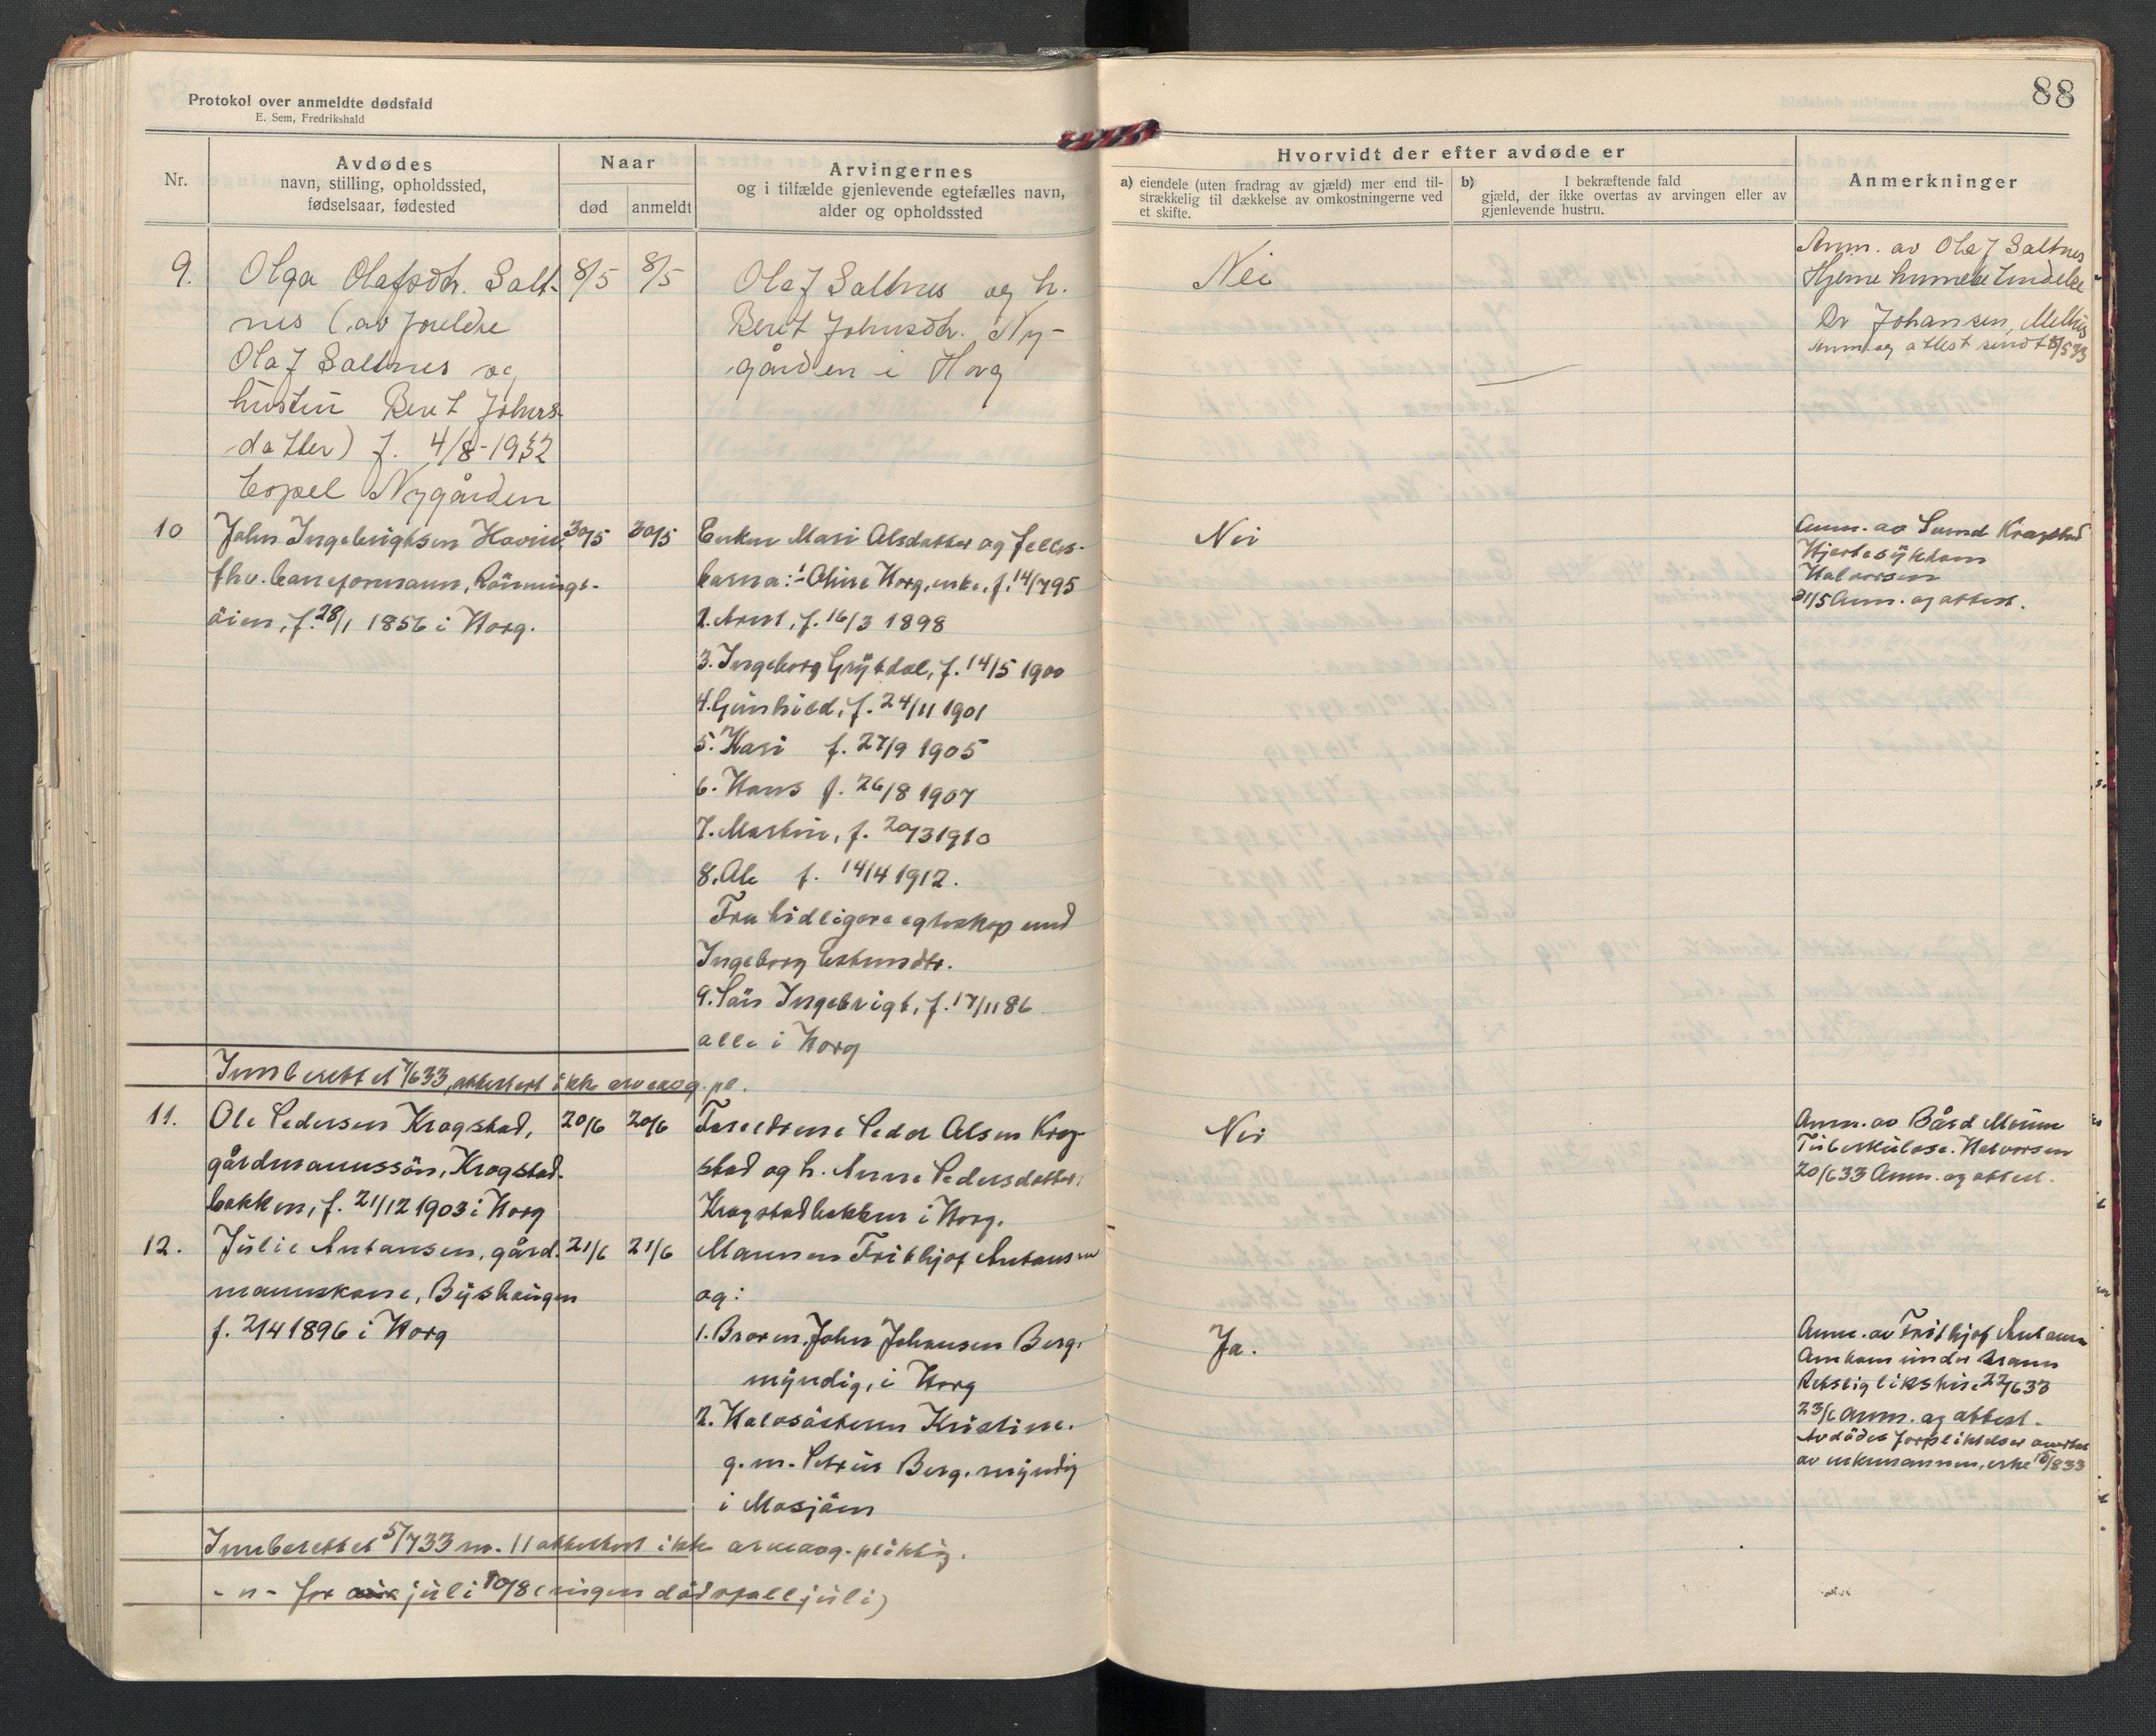 88
Protokol over anmeldte dødsfald
E. Sem, Fredrikshald
Nr.
Avdødes
navn, stilling, opholdssted,
fødselsaar, fødested
Naar
død
anmeldt
Arvingernes
og i tilfælde gjenlevende egtefælles navn,
alder og opholdssted
Hvorvidt der efter avdøde er
a) eiendele (uten fradrag av gjæld) mer end til-
strækkelig til dækkelse av omkostningerne ved
et skifte.
b) I bekræftende fald
gjæld, der ikke overtas av arvingen eller av
gjenlevende hustru.
Anmerkninger
9.
Olga Olafsdtr. Salt-
nes (av foreldre
Olaf Saltnes og
hustru Berit Johns-
datter) f. 4/8-1932
Nygården
8/5
8/5
Olaf Saltnes og h.
Berit Johnsdtr. Ny-
gården i Horg
Nei
Anm. av Olaf Saltnes
Hjernehinnebetendelse
Dr Johansen, Melhus
Anm. og attest sendt 8/5 33
10
John Ingebrigtsen Havin
fhv. baneformann, Rönnings-
öien, f. 28/1 1856 i Horg.
30/5
30/5
Enken Mari Olsdatter og felles-
barna: 1. Oline Horg, enke, f. 14/7 95
2. Arnt, f. 16/3 1898
3. Ingeborg Grytdal, f. 14/5 1900
4. Gunhild, f. 24/11 1901
5. Kari f. 27/9 1905
6. Hans f. 26/8 1907
7. Martin, f. 20/3 1910
8. Ole f. 14/4 1912.
Fra tidligere egteskap med
Ingeborg Estensdtr.
9. Lars Ingebrigt, f. 17/11 86
alle i Horg
Nei
Anm. av Kragstad
Hjertesykdom
Halvorsen
31/5 Anm. og attest.
Innberettet 7/6 33, attestert ikke arveavg. pl.
11.
Ole Pedersen Kragstad,
gårdmannssön, Kragstad-
bakken, f. 21/12 1903 i Horg
20/6
20/6
Foreldrene Peder Olsen Krag-
stad og h. Anne Pedersdatter,
Kragstadbakken i Horg.
Nei
Anm. av Bård Moum
Tuberkulose. Halvorsen
20/6 33 Anm. og attest.
12.
Julie Antonsen, gård-
mannskone, Byshaugen
f. 2/4 1896 i Horg
21/6
21/6
Mannen Frithjof Antonsen
og:
1. Broren, John Johansen Berg,
myndig, i Horg
2. Halvsösteren Kristine.
g. m. Petrus Berg. myndig
i Mosjöen
Ja.
Anm. av Frithjof Antonsen
Omkom under brann
Retslig likskue 22/6 33
23/6 Anm. og attest.
Avdödes forpliktelser overtatt
av enkemannen, erkl. 15/8 33
Innberettet 5/7 33 nr. 11 attestert ikke arveavg. pliktig.
- " - for juli 10/8 (ingen dödsfall juli)